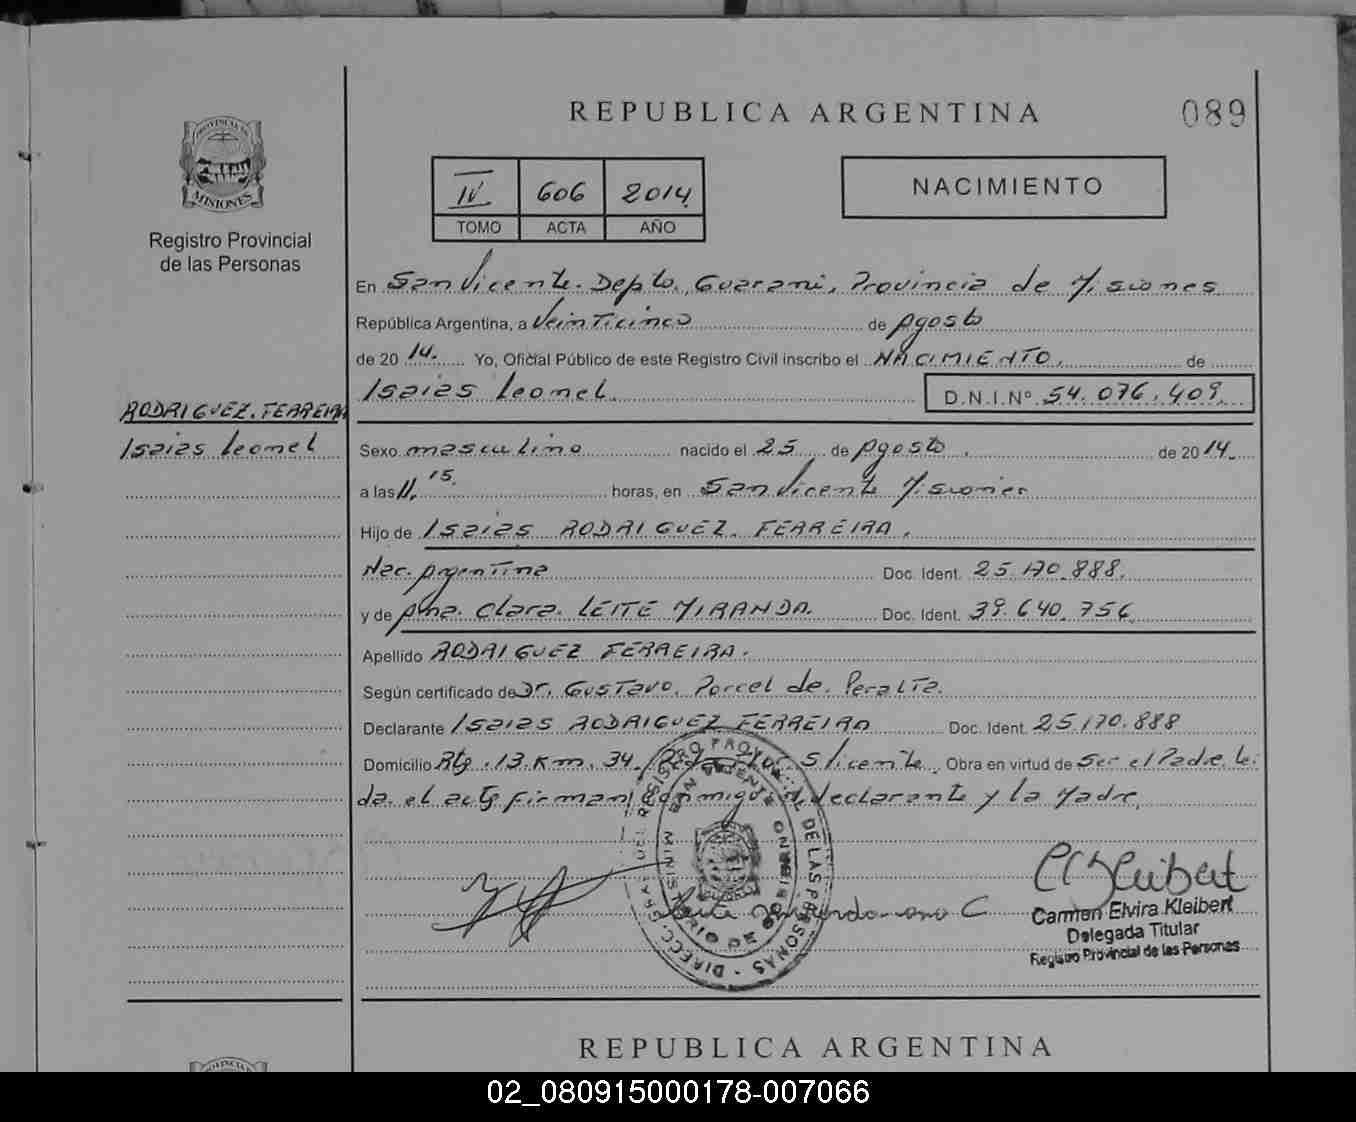 REPUBLICA ARGENTINA
089
PROVINCIA DE
MISIONES
Registro Provincial
de las Personas
IV 606 2014
TOMO ACTA AÑO
NACIMIENTO
En San Vicente. Depto. Guarani, Provincia de Misiones
República Argentina, a Veinticinco de Agosto
de 20 14. Yo, Oficial Público de este Registro Civil inscribo el NACIMIENTO. de
Isaias Leonel. D.N.I.Nº 54.076.409.
RODRIGUEZ. FERREIRA
Isaias Leonel
Sexo masculino nacido el 25 de Agosto. de 20 14.
a las 11.15. horas, en San Vicente Misiones
Hijo de Isaias RODRIGUEZ. FERREIRA.
Nac. Argentina Doc. Ident. 25.170.888.
y de Ana. Clara. LEITE MIRANDA. Doc. Ident. 39.640.756
Apellido RODRIGUEZ FERREIRA.
Según certificado de Dr. Gustavo. Porcel de. Peralta.
Declarante Isaias RODRIGUEZ FERREIRA Doc. Ident. 25.170.888
Domicilio Rta. 13 Km. 34. S/Vicente. Obra en virtud de Ser el Padre. Lei
da. el acta firman conmigo. el declarante y la Madre.
DIRECC. GRAL. DEL REGISTRO PROVINCIAL DE LAS PERSONAS
SAN VICENTE
MINISTERIO DE GOBIERNO
Carmen Elvira Kleibert
Delegada Titular
Registro Provincial de las Personas
REPUBLICA ARGENTINA
02_080915000178-007066